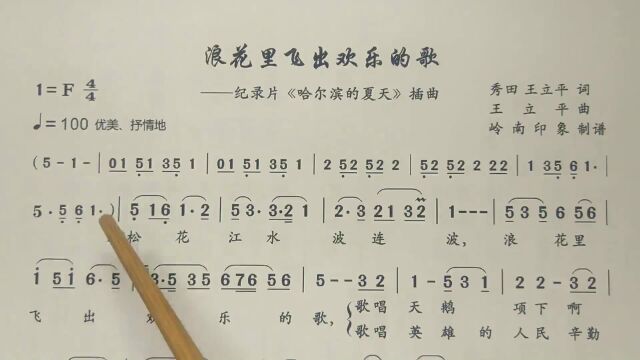 浪花里飞出欢乐的歌
1=F 4/4
——纪录片《哈尔滨的夏天》插曲
秀田 王立平 词
王 立 平 曲
岭 南 印 象 制谱
♩=100 优美、抒情地
(5 - 1 - | 01 51 35 1 | 01 51 35 1 | 2 52 52 2 | 2 52 52 2 | 1 35 61·
5· 5 6 1·)| 5 16 1· 2 | 53· 3·2 1 | 2·3 21 32 | 1 - - - | 5 35 6 56
松 花 江 水 波 连 波, 浪 花 里
i 5i 6· 5 | 3·5 35 676 56
飞 出 欢 乐 的 歌,
歌唱 天 鹅 项 下 啊
歌唱 英 雄 的 人 民 辛勤